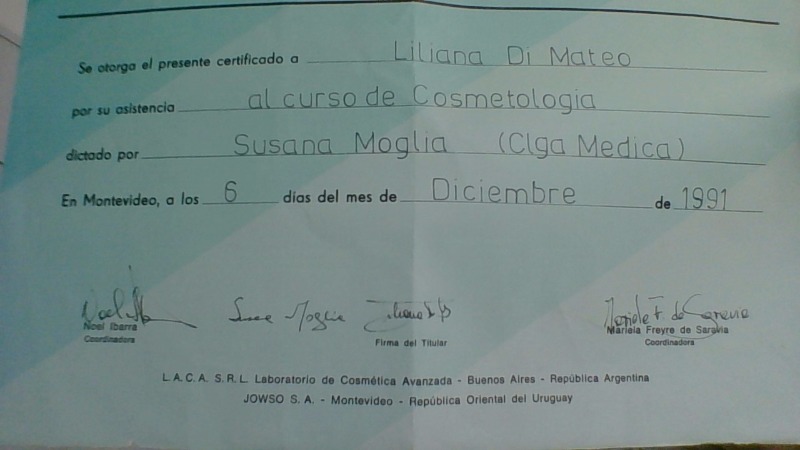 Se otorga el presente certificado a Liliana Di Mateo
por su asistencia al curso de Cosmetologia
dictado por Susana Moglia (Clga Medica)
En Montevideo, a los 6 días del mes de Diciembre de 1991
Susana Moglia
Noel Ibarra
Coordinadora
Firma del Titular
Mariela F. de Saravia
Mariela Freyre de Saravia
Coordinadora
L.A.C.A. S.R.L. Laboratorio de Cosmética Avanzada - Buenos Aires - República Argentina
JOWSO S.A. - Montevideo - República Oriental del Uruguay